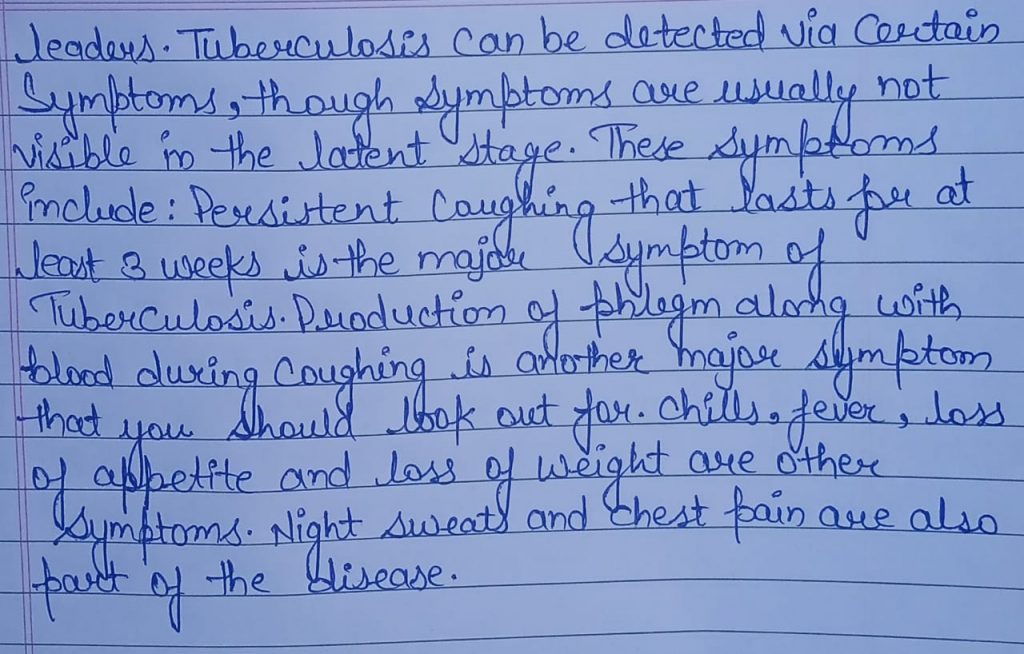 leaders. Tuberculosis can be detected via certain
Symptoms, though symptoms are usually not
visible in the latent stage. These symptoms
include: Persistent coughing that lasts for at
least 3 weeks is the major symptom of
Tuberculosis. Production of phlegm along with
blood during coughing is another major symptom
that you should look out for. Chills, fever, loss
of appetite and loss of weight are other
symptoms. Night sweats and chest pain are also
part of the disease.